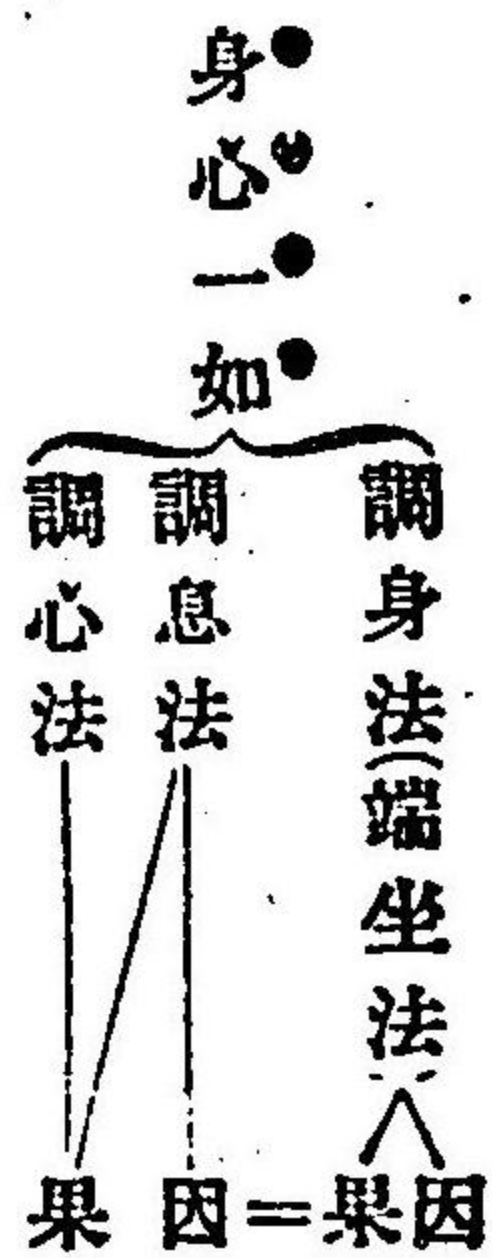 身心一如
調身法(端坐法)
調息法
調心法
因果=因果